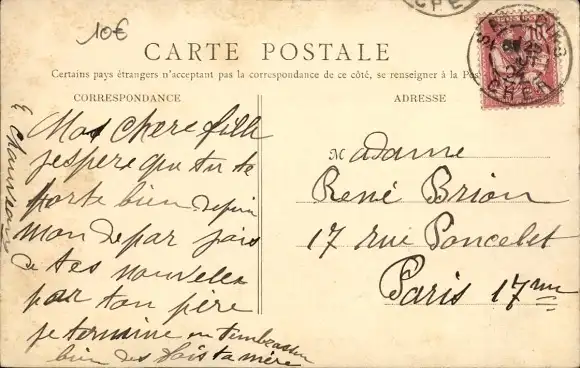 10€
CARTE POSTALE
Certains pays étrangers n'acceptant pas la correspondance de ce côté, se renseigner à la Pos
CORRESPONDANCE
Mas chere fille
jespere que tu te
porte bien depuis
mon depar jais
a tes nouvelles
par ton père
je termine en tembrassan
bien des fois ta mère
ADRESSE
Madame
René Brion
17 rue Poncelet
Paris 17me
10
CHER
CHER